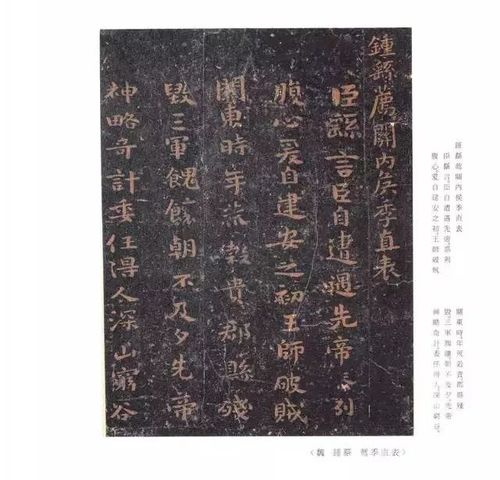 鍾繇薦關内侯季直表
臣繇言臣自遭遇先帝忝列
腹心爰自建安之初王師破賊
關東時年荒穀貴郡縣殘
毀三軍餽饟朝不及夕先帝
神略奇計委任得人深山窮谷
鍾繇薦關内侯季直表
臣繇言臣自遭遇先帝忝列
腹心爰自建安之初王師破賊
關東時年荒穀貴郡縣殘
毀三軍餽饟朝不及夕先帝
神略奇計委任得人深山窮谷
（魏 鍾繇 薦季直表）